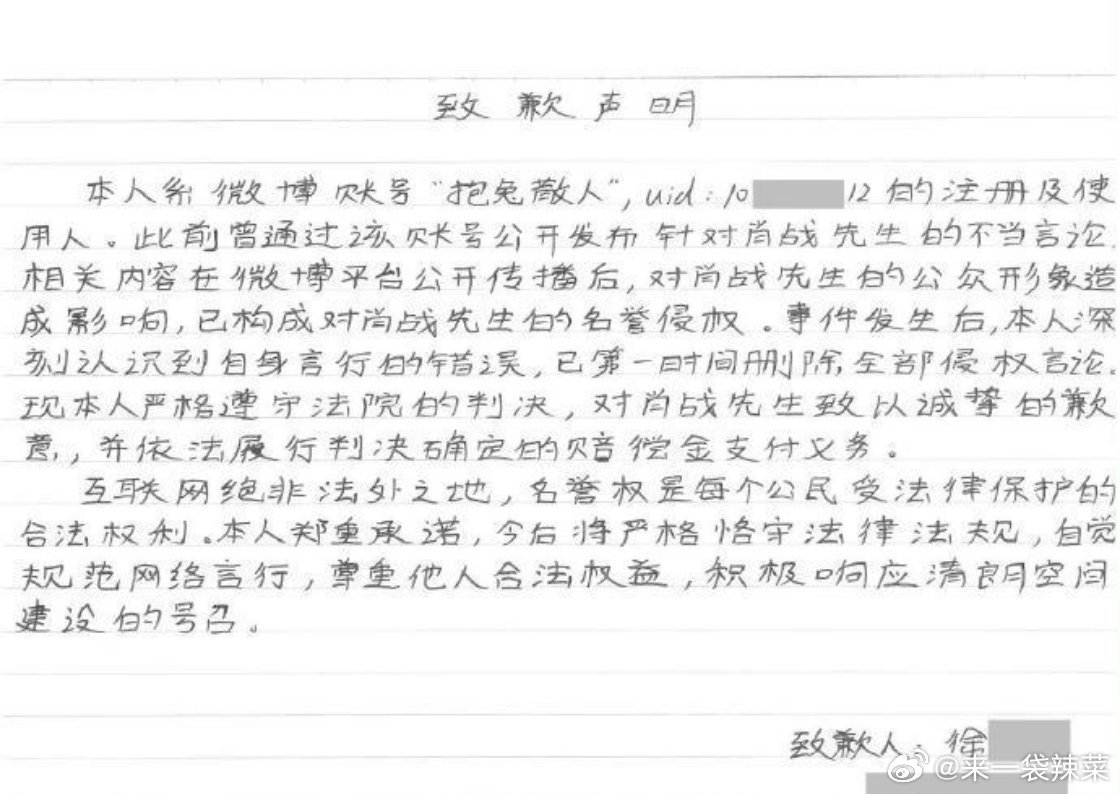 致歉声明
本人系微博账号“抱兔散人”,uid:10 12的注册及使
用人。此前曾通过该账号公开发布针对肖战先生的不当言论
相关内容在微博平台公开传播后,对肖战先生的公众形象造
成影响,已构成对肖战先生的名誉侵权。事件发生后,本人深
刻认识到自身言行的错误,已第一时间删除全部侵权言论.
现本人严格遵守法院的判决,对肖战先生致以诚挚的歉
意,并依法履行判决确定的赔偿金支付义务。
互联网绝非法外之地,名誉权是每个公民受法律保护的
合法权利。本人郑重承诺,今后将严格恪守法律法规,自觉
规范网络言行,尊重他人合法权益,积极响应清朗空间
建设的号召。
致歉人:徐
@来一袋辣菜